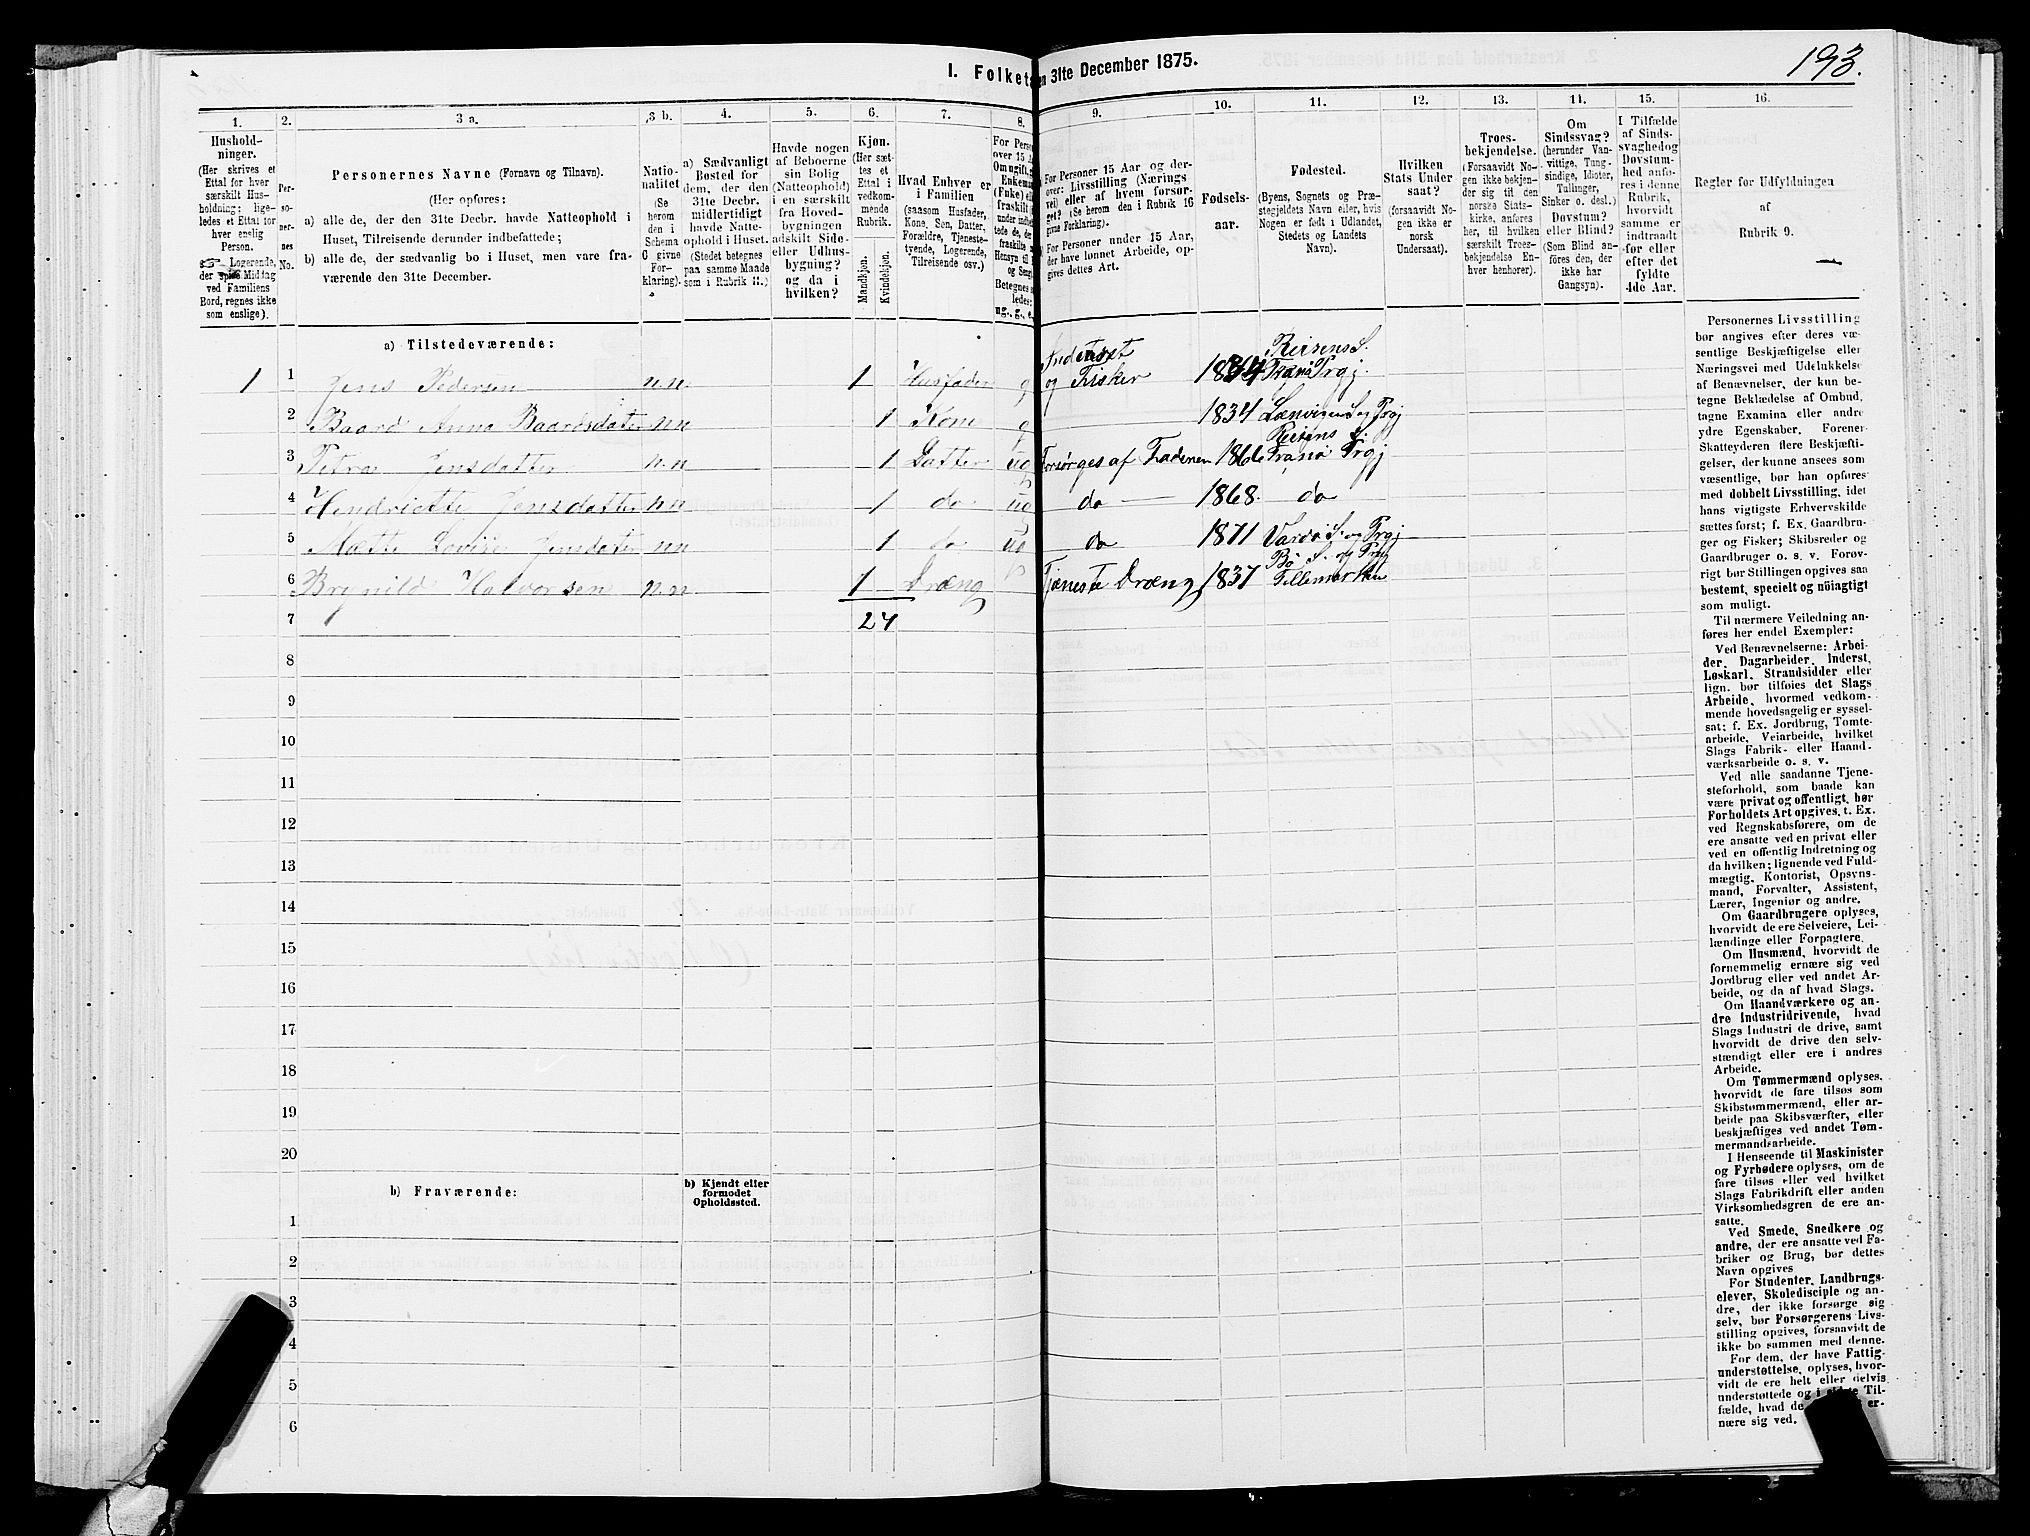 193.
I. Folket
n 31te December 1875.
1.
2.
3 a.
3 b.
4.
5.
6.
7.
8.
9.
10.
11.
12.
13.
14.
15.
16.
Hushold-
ninger.
(Her skrives et
Ettal for hver
særskilt Hus-
holdning; lige-
ledes et Ettal for
hver enslig
Person.
Logerende,
der spise Middag
ved Familiens
Bord, regnes ikke
som enslige).
Per-
so-
ner-
nes
No.
Personernes Navne (Fornavn og Tilnavn).
(Her opføres:
a) alle de, der den 31te Decbr. havde Natteophold i
Huset, Tilreisende derunder indbefattede;
b) alle de, der sædvanlig bo i Huset, men vare fra-
værende den 31te December.
Natio-
nalitet
(Se
herom
den i
Schema
6 givne
For-
klaring).
a) Sædvanligt
Bosted for
dem, der den
31te Decbr.
midlertidigt
havde Natte-
ophold i Huset.
(Stedet betegnes
paa samme Maade
som i Rubrik 11.)
Havde nogen
af Beboerne
sin Bolig
(Natteophold)
i en særskilt
fra Hoved-
bygningen
adskilt Side-
eller Udhus-
bygning?
og da i
hvilken?
Kjøn.
(Her sæt-
tes et
Ettal i
vedkom-
mende
Rubrik.
Mandkjøn.
Kvindekjøn.
Hvad Enhver er
i Familien
(saasom Husfader,
Kone, Søn, Datter,
Forældre, Tjeneste-
tyende, Logerende,
Tilreisende osv.)
For Person
over 15 A
Om ugift,
Enkem
(Fuke)
fraskilt
under
tede de,
fraskilte
Hensyn til
og Seng
Betegnes s
ledes:
ug., g., e.
For Personer 15 Aar og der-
over: Livsstilling (Nærings
vei) eller af hvem forsør-
get? (Se herom den i Rubrik 16
givne Forklaring.)
For Personer under 15 Aar,
der have lønnet Arbeide, op-
gives dettes Art.
Fødsels-
aar.
Fødested.
(Byens, Sognets og Præ-
stegjeldets Navn eller, hvis
Nogen er født i Udlandet,
Stedets og Landets
Navn).
Hvilken
Stats Under
saat?
(forsaavidt No-
gen ikke er
norsk
Undersaat).
Troes-
bekjendelse.
(Forsaavidt No-
gen ikke bekjen-
der sig til den
norske Stats-
kirke, anføres
her, til hvilken
særskilt Troes-
bekjendelse En-
hver henhører).
Om
Sindssvag?
(herunder Van-
vittige, Tung-
sindige, Idioter,
Tullinger,
Sinker o. desl.)
Døvstum?
eller Blind?
(Som Blind an-
føres den, der
ikke har
Gangsyn).
I Tilfælde
af Sinds-
svaghed og
Døvstum-
hed anfø-
res i denne
Rubrik,
hvorvidt
samme er
indtraadt
før eller
efter det
fyldte
4de Aar.
Regler for Udfyldningen
af
Rubrik 9.
a) Tilstedeværende:
1 1 Jens Pedersen n.n. 1 Husfader g
og Fisker 1834 Reisens S. Tranø Prgj.
2 Baard Anna Baardsdatter n.n 1 Kone g 1834 Lænvigen S og Prgj
3 Petra Jensdatter n.n 1 Datter ug Forsørges af Faderen 1866 Reisens S. Tranø Prgj
4 Hendriette Jensdatter n.n 1 do ug do 1868. do
5 Mætte Lovise Jensdater n.n 1 do ug do 1871 Vardø S. og Prgj
6 Brynild Halvorsen n.n 1 Dræng Tjeneste Dræng 1837 Bø S. og Prgj Tillemarken
7 2 4
8
9
10
11
12
13
14
15
16
17
18
19
20
b) Fraværende:
b) Kjendt eller
formodet
Opholdssted.
1
2
3
4
5
6
Personernes Livsstilling
bør angives efter deres væ-
sentlige Beskjæftigelse eller
Næringsvei med Udelukkelse
af Benævnelser, der kun be-
tegne Beklædelse af Ombud,
tagne Examina eller andre
ydre Egenskaber. Forener
Skatteyderen flere Beskjæfti-
gelser, der kunne ansees som
væsentlige, bør han opføres
med dobbelt Livsstilling, idet
hans vigtigste Erhvervskilde
sættes først; f. Ex. Gaardbru-
ger og Fisker; Skibsreder og
Gaardbruger o. s. v. Forøv-
rigt bør Stillingen opgives saa
bestemt, specielt og nöiagtigt
som muligt.
Til nærmere Veiledning an-
føres her endel Exempler:
Ved Benævnelserne: Arbei-
der, Dagarbeider, Inderst,
Løskarl, Strandsidder eller
lign. bør tilføies det Slags
Arbeide, hvormed vedkom-
mende hovedsagelig er syssel-
sat; f. Ex. Jordbrug, Tomte-
arbeide, Veiarbeide, hvilket
Slags Fabrik- eller Haand-
værksarbeide o. s. v.
Ved alle saadanne Tjene-
steforhold, som baade kan
være privat og offentligt, bør
Forholdets Art opgives, t. Ex.
ved Regnskabsførere, om de
ere ansatte ved en privat eller
ved en offentlig Indretning og
da hvilken; lignende ved Fuld-
mægtig, Kontorist, Opsyns-
mand, Forvalter, Assistent,
Lærer, Ingeniør og andre.
Om Gaardbrugere oplyses,
hvorvidt de ere Selveiere, Lei-
lændinge eller Forpagtere.
Om Husmænd, hvorvidt de
fornemmelig ernære sig ved
Jordbrug eller ved andet Ar-
beide, og da af hvad Slags.
Om Haandværkere og an-
dre Industridrivende, hvad
Slags Industri de drive, samt
hvorvidt de drive den selv-
stændigt eller ere i andres
Arbeide.
Om Tømmermænd oplyses,
hvorvidt de fare tilsøs som
Skibstømmermænd, eller ar-
beide paa Skibsværfter, eller
beskjæftiges ved andet Tøm-
mermandsarbeide.
I Henseende til Maskinister
og Fyrbødere oplyses, om de
fare tilsøs eller ved hvilket
Slags Fabrikdrift eller anden
Virksomhedsgren de ere an-
satte.
Ved Smede, Snedkere og
andre, der ere ansatte ved Fa-
briker og Brug, bør dettes
Navn opgives
For Studenter, Landbrugs-
elever, Skoledisciple og an-
dre, der ikke forsørge sig
selv, bør Forsørgerens Livs-
stilling opgives, forsaavidt de
ikke bo sammen med denne.
For dem, der have Fattig-
understøttelse, oplyses, hvor-
vidt de ere helt eller delvis
understøttede og i Til-
fælde, hvad de er-
nære sig ved.